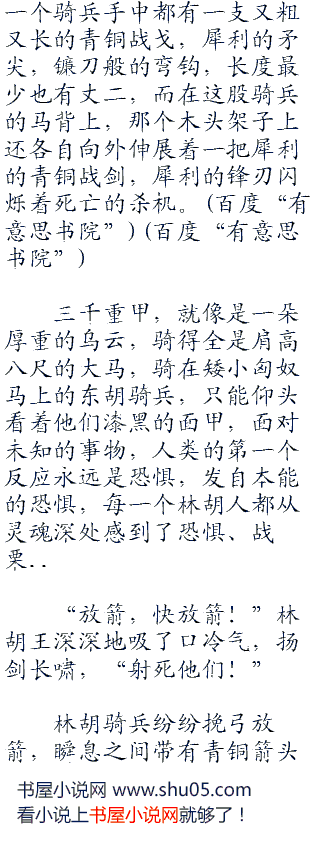 一个骑兵手中都有一支又粗
又长的青铜战戈，犀利的矛
尖，镰刀般的弯钩，长度最
少也有丈二，而在这股骑兵
的马背上，那个木头架子上
还各自向外伸展着一把犀利
的青铜战剑，犀利的锋刃闪
烁着死亡的杀机。(百度“有
意思书院”)(百度“有意思
书院”)
三千重甲，就像是一朵
厚重的乌云，骑得全是肩高
八尺的大马，骑在矮小匈奴
马上的东胡骑兵，只能仰头
看着他们漆黑的面甲，面对
未知的事物，人类的第一个
反应永远是恐惧，发自本能
的恐惧，每一个林胡人都从
灵魂深处感到了恐惧、战
栗..
“放箭，快放箭！”林
胡王深深地吸了口冷气，扬
剑长啸，“射死他们！”
林胡骑兵纷纷挽弓放
箭，瞬息之间带有青铜箭头
书屋小说网 www.shu05.com
看小说上书屋小说网就够了！